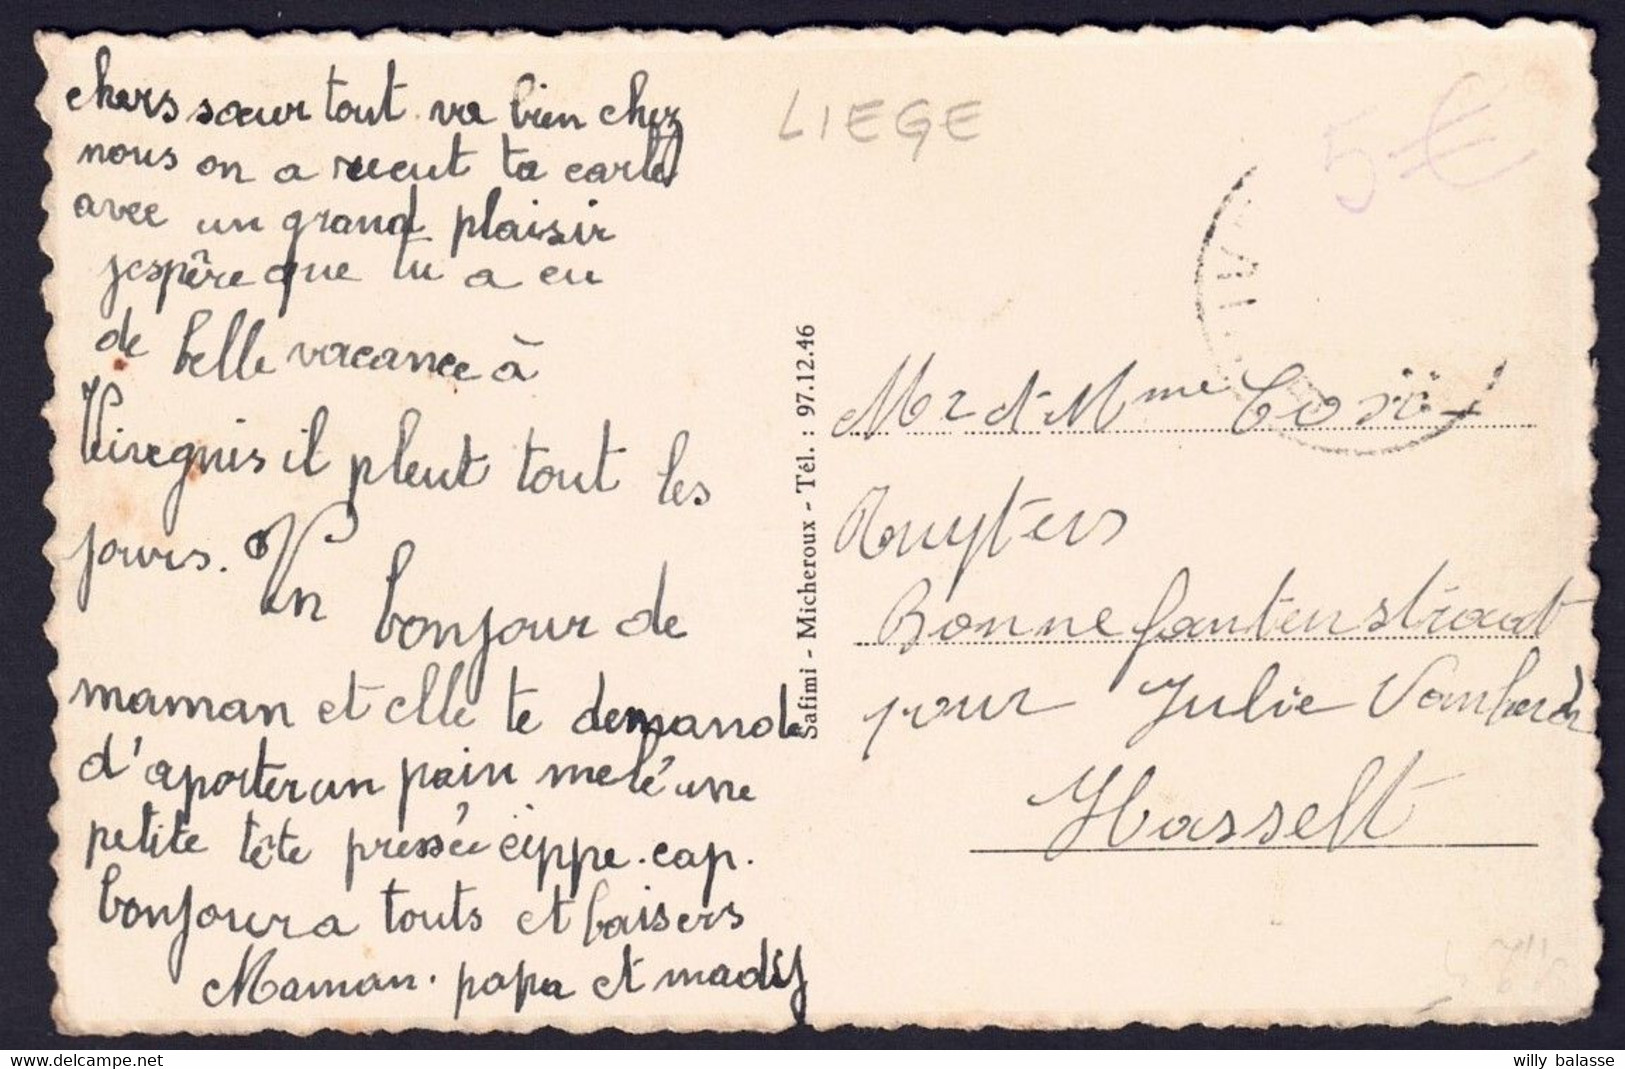 chers sœur tout va bien chez
nous on a recut ta carte
avec un grand plaisir
jespêre que tu a eu
de belle vacance à
il pleut tout les
jours. Un
bonjour de
maman et elle te demande
d'aporter un pain melé une
petite tête pressée cippe.cap.
bonjour a touts et baisers
Maman. papa et mady
LIEGE
5€
Safimi - Micheroux - Tél. : 97.12.46
Mr et Mme
Ruyters
Bonnefantenstraat
pour Julie
Hasselt
willy balasse